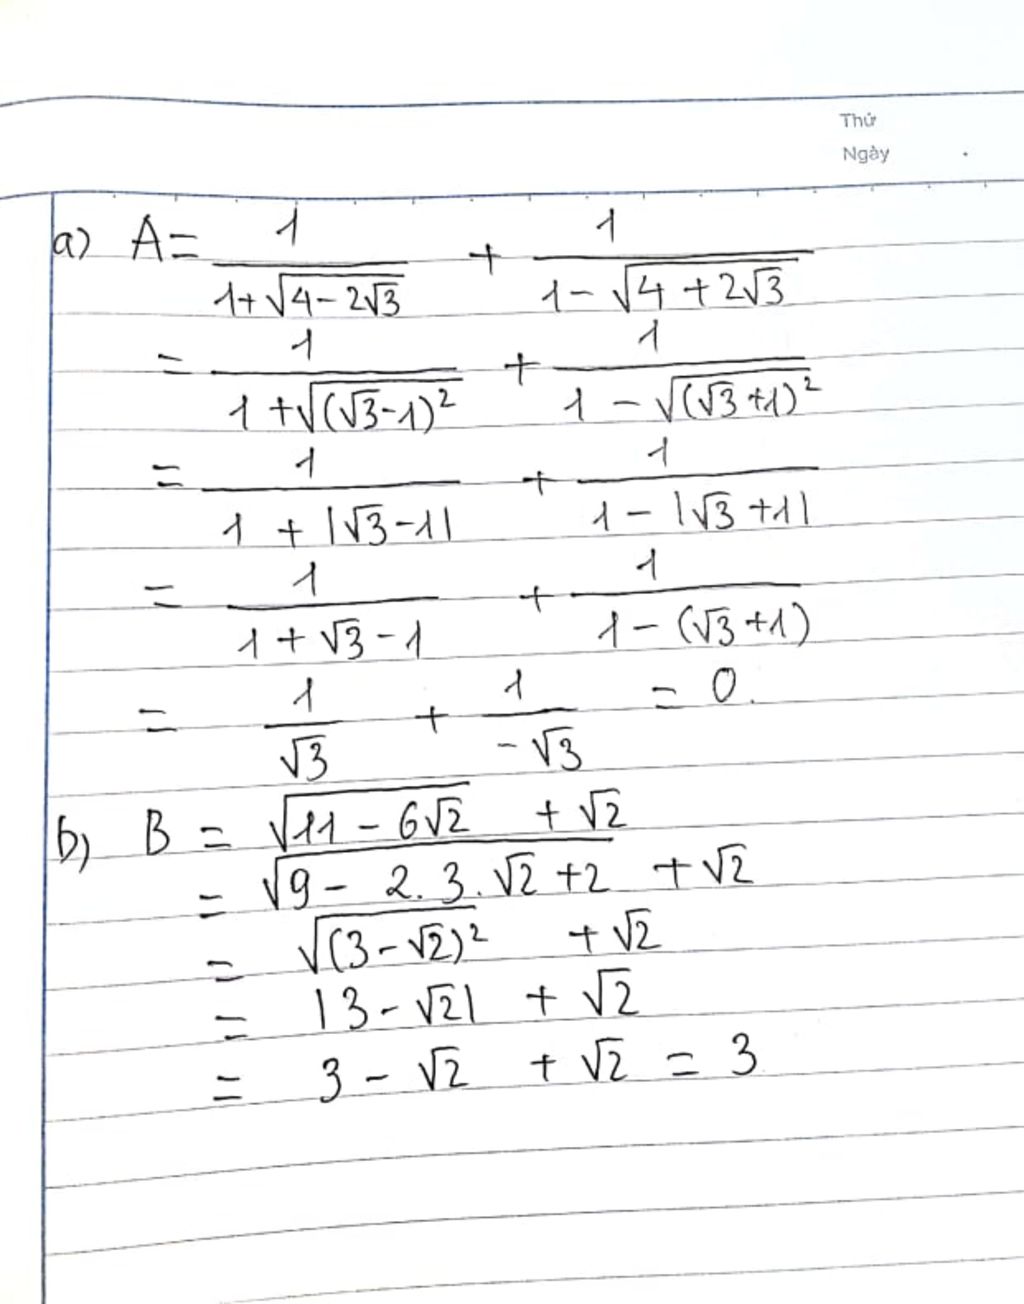 Thứ
Ngày
a) A = 1/(1+√(4-2√3)) + 1/(1-√(4+2√3))
= 1/(1+√((√3-1)²)) + 1/(1-√((√3+1)²))
= 1/(1+|√3-1|) + 1/(1-|√3+1|)
= 1/(1+√3-1) + 1/(1-(√3+1))
= 1/√3 + 1/(-√3) = 0.
b) B = √(11-6√2) + √2
= √(9-2.3.√2+2) + √2
= √((3-√2)²) + √2
= |3-√2| + √2
= 3-√2 + √2 = 3